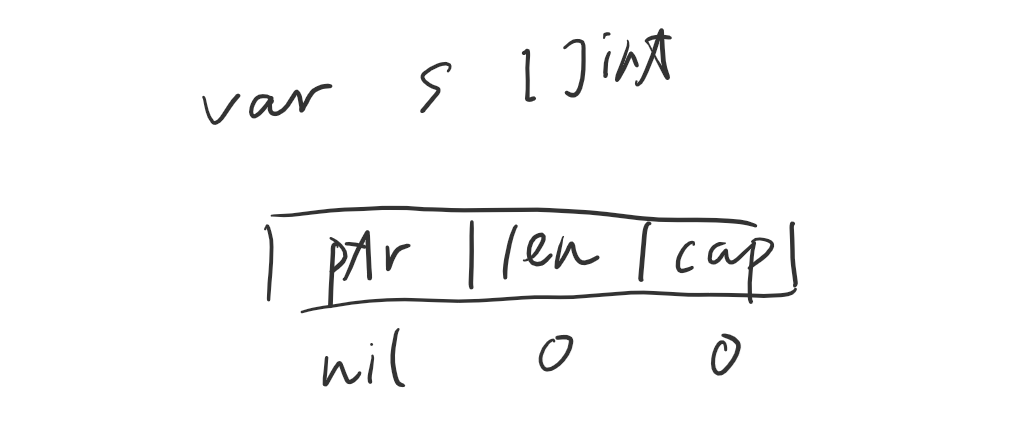 var s []int
ptr len cap
nil 0 0